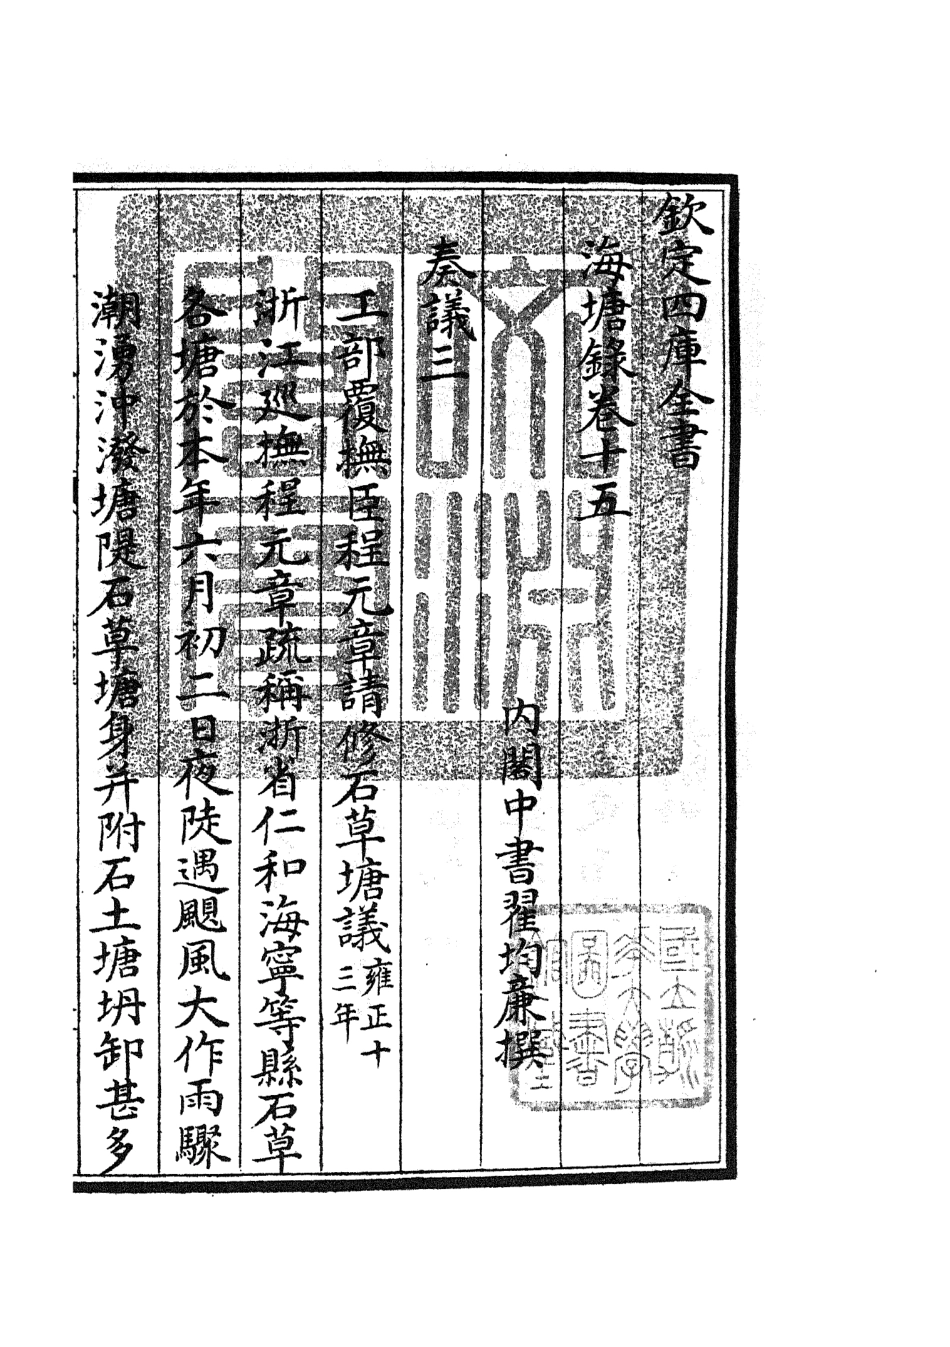 欽定四庫全書
海塘錄卷十五
內閣中書翟均廉撰
奏議三
工部覆撫臣程元章請修石草塘議雍正十三年
浙江廵撫程元章疏稱浙省仁和海寧等縣石草
各塘於本年六月初二日夜陡遇颶風大作雨驟
潮湧沖潑塘隄石草塘身并附石土塘坍卸甚多